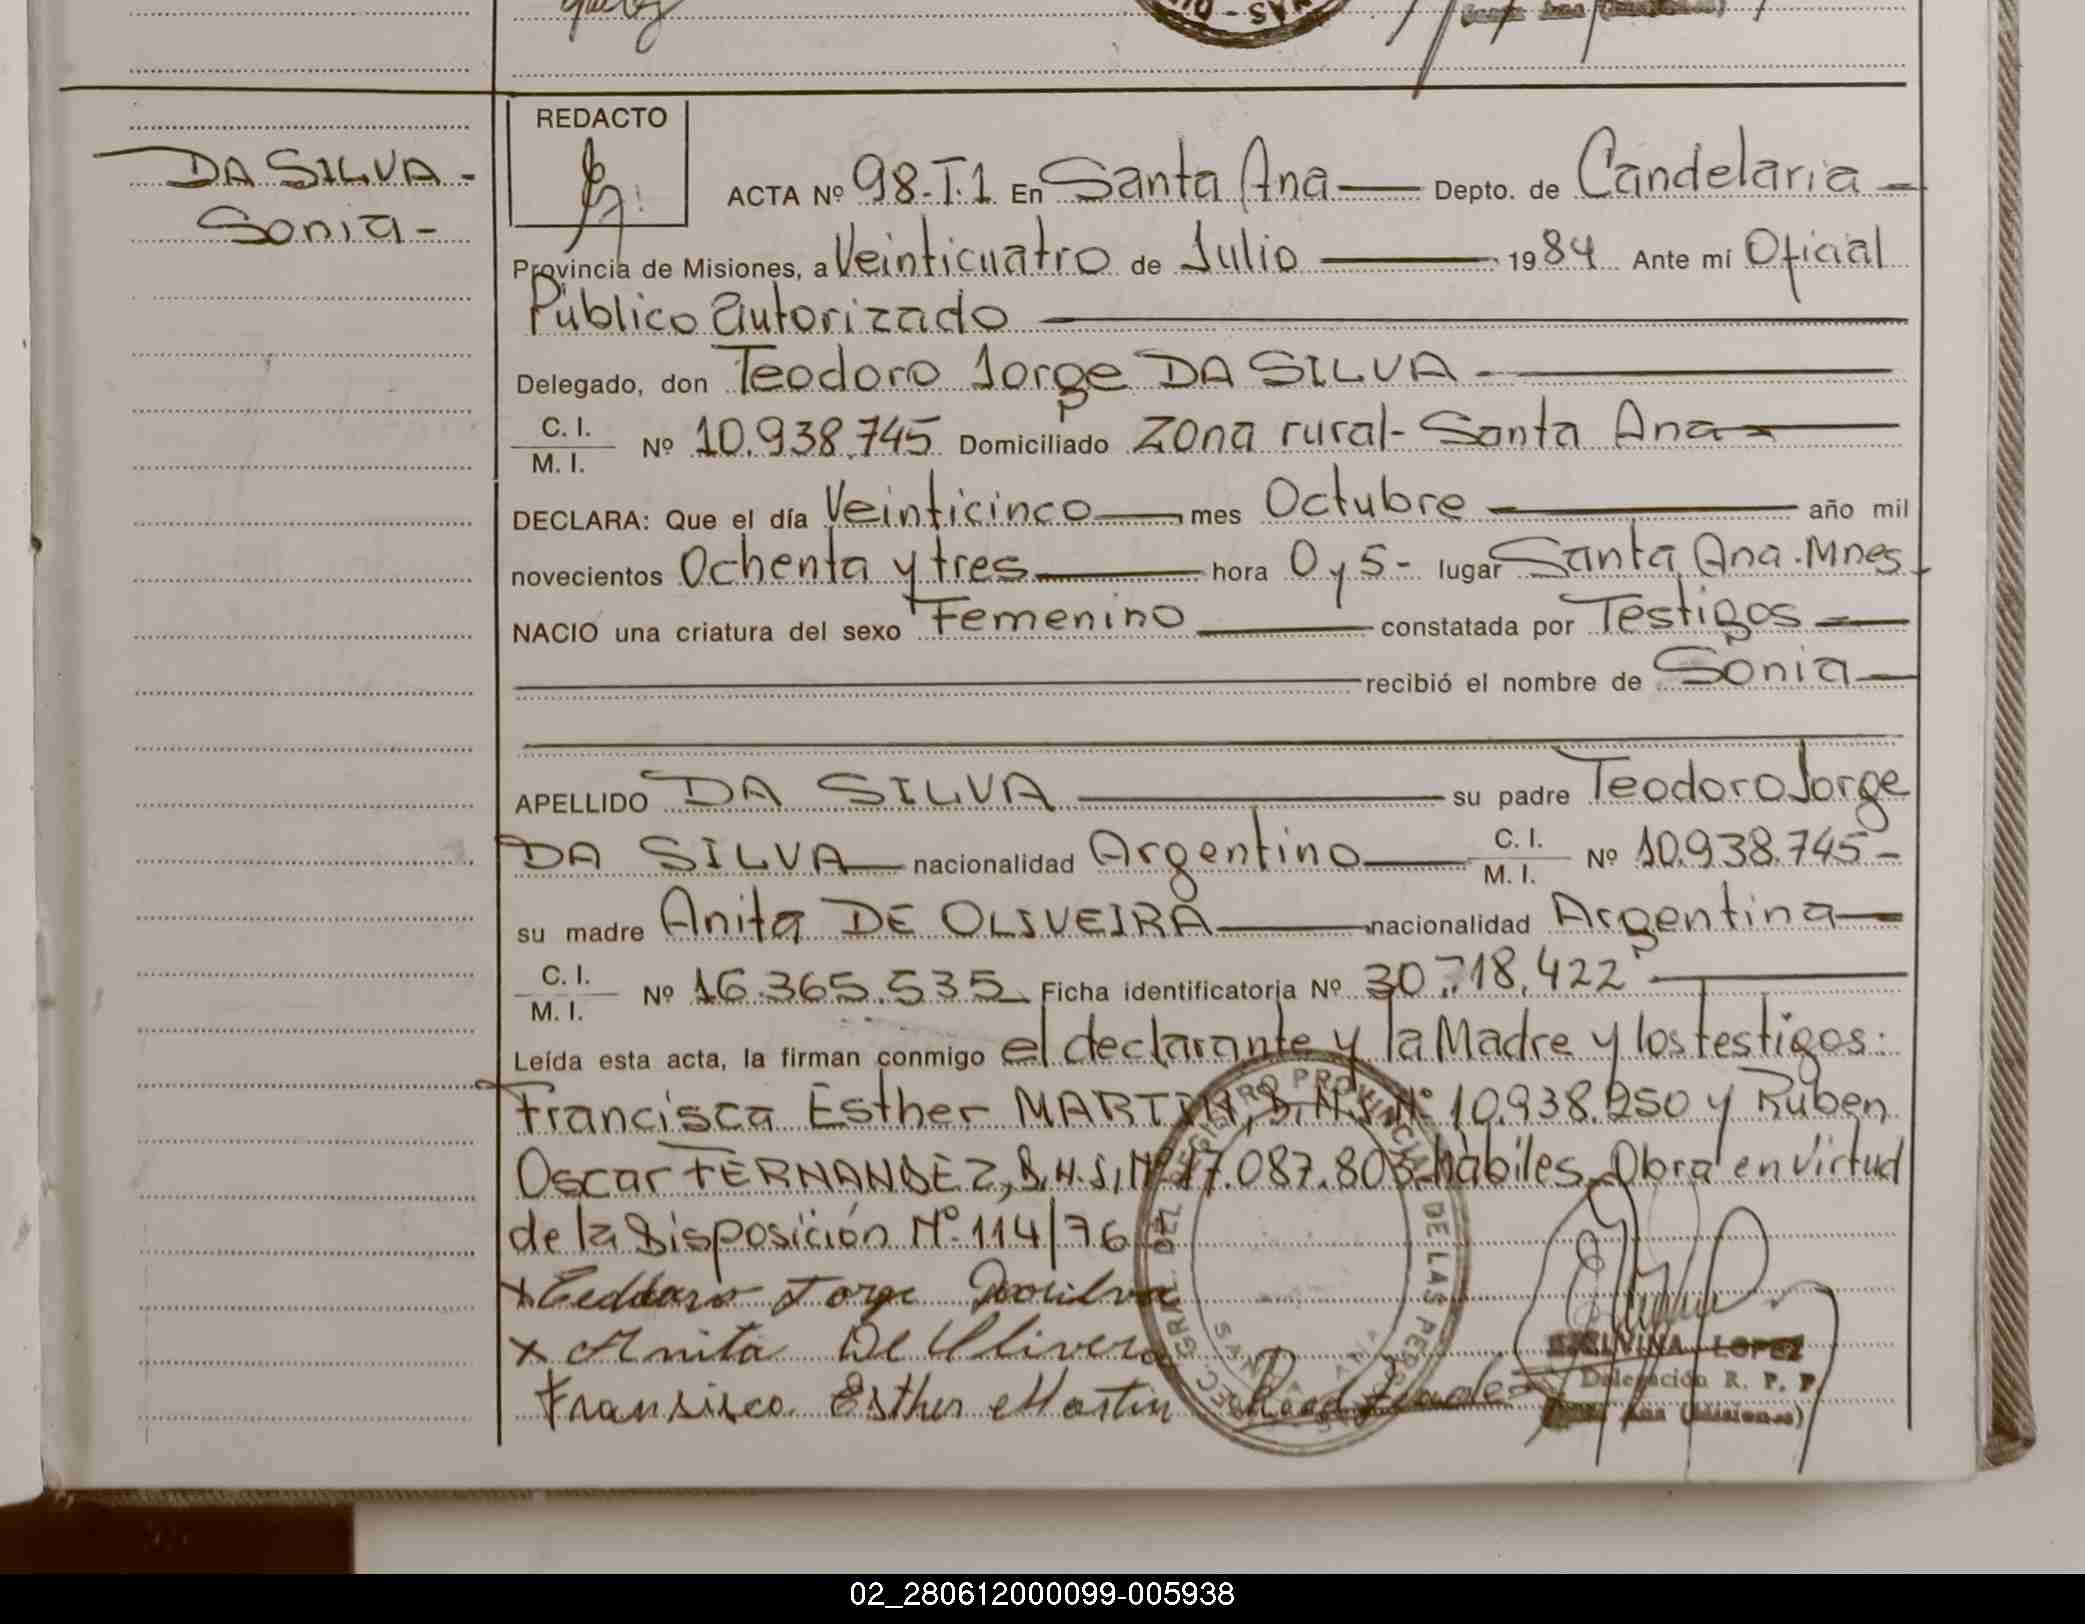 DA SILVA -
Sonia -
REDACTO
ACTA Nº 98-T.1 En Santa Ana Depto. de Candelaria -
Provincia de Misiones, a Veinticuatro de Julio 1984 Ante mi Oficial
Público autorizado
Delegado, don Teodoro Jorge DA SILVA -
C. I.
M. I. Nº 10.938.745 Domiciliado Zona rural - Santa Ana -
DECLARA: Que el día Veinticinco mes Octubre año mil
novecientos Ochenta y tres hora 0 y 5 - lugar Santa Ana. Mnes
NACIO una criatura del sexo Femenino constatada por Testigos
recibió el nombre de Sonia
APELLIDO DA SILVA su padre Teodoro Jorge
DA SILVA nacionalidad Argentino C. I. M. I. Nº 10.938.745 -
su madre Anita DE OLIVEIRA nacionalidad Argentina
C. I.
M. I. Nº 16.365.535 Ficha identificatoria Nº 30.718.422
Leída esta acta, la firman conmigo el declarante y la Madre y los testigos:
Francisca Esther MARTIN, D.N.I. Nº 10.938.250 y Ruben
Oscar FERNANDEZ, D.N.I, Nº 17.087.803 - hábiles. Obra en virtud
de la Disposición Nº 114/76
x Teddoro Jorge Dasilva
x Anita De Olivera
Fransisca Esther Martin
REGISTRO PROVINCIAL DE LAS PERSONAS
SANTA ANA
ELVINA LOPEZ
Delegación R. P. P.
Ana (Misiones)
02_280612000099-005938